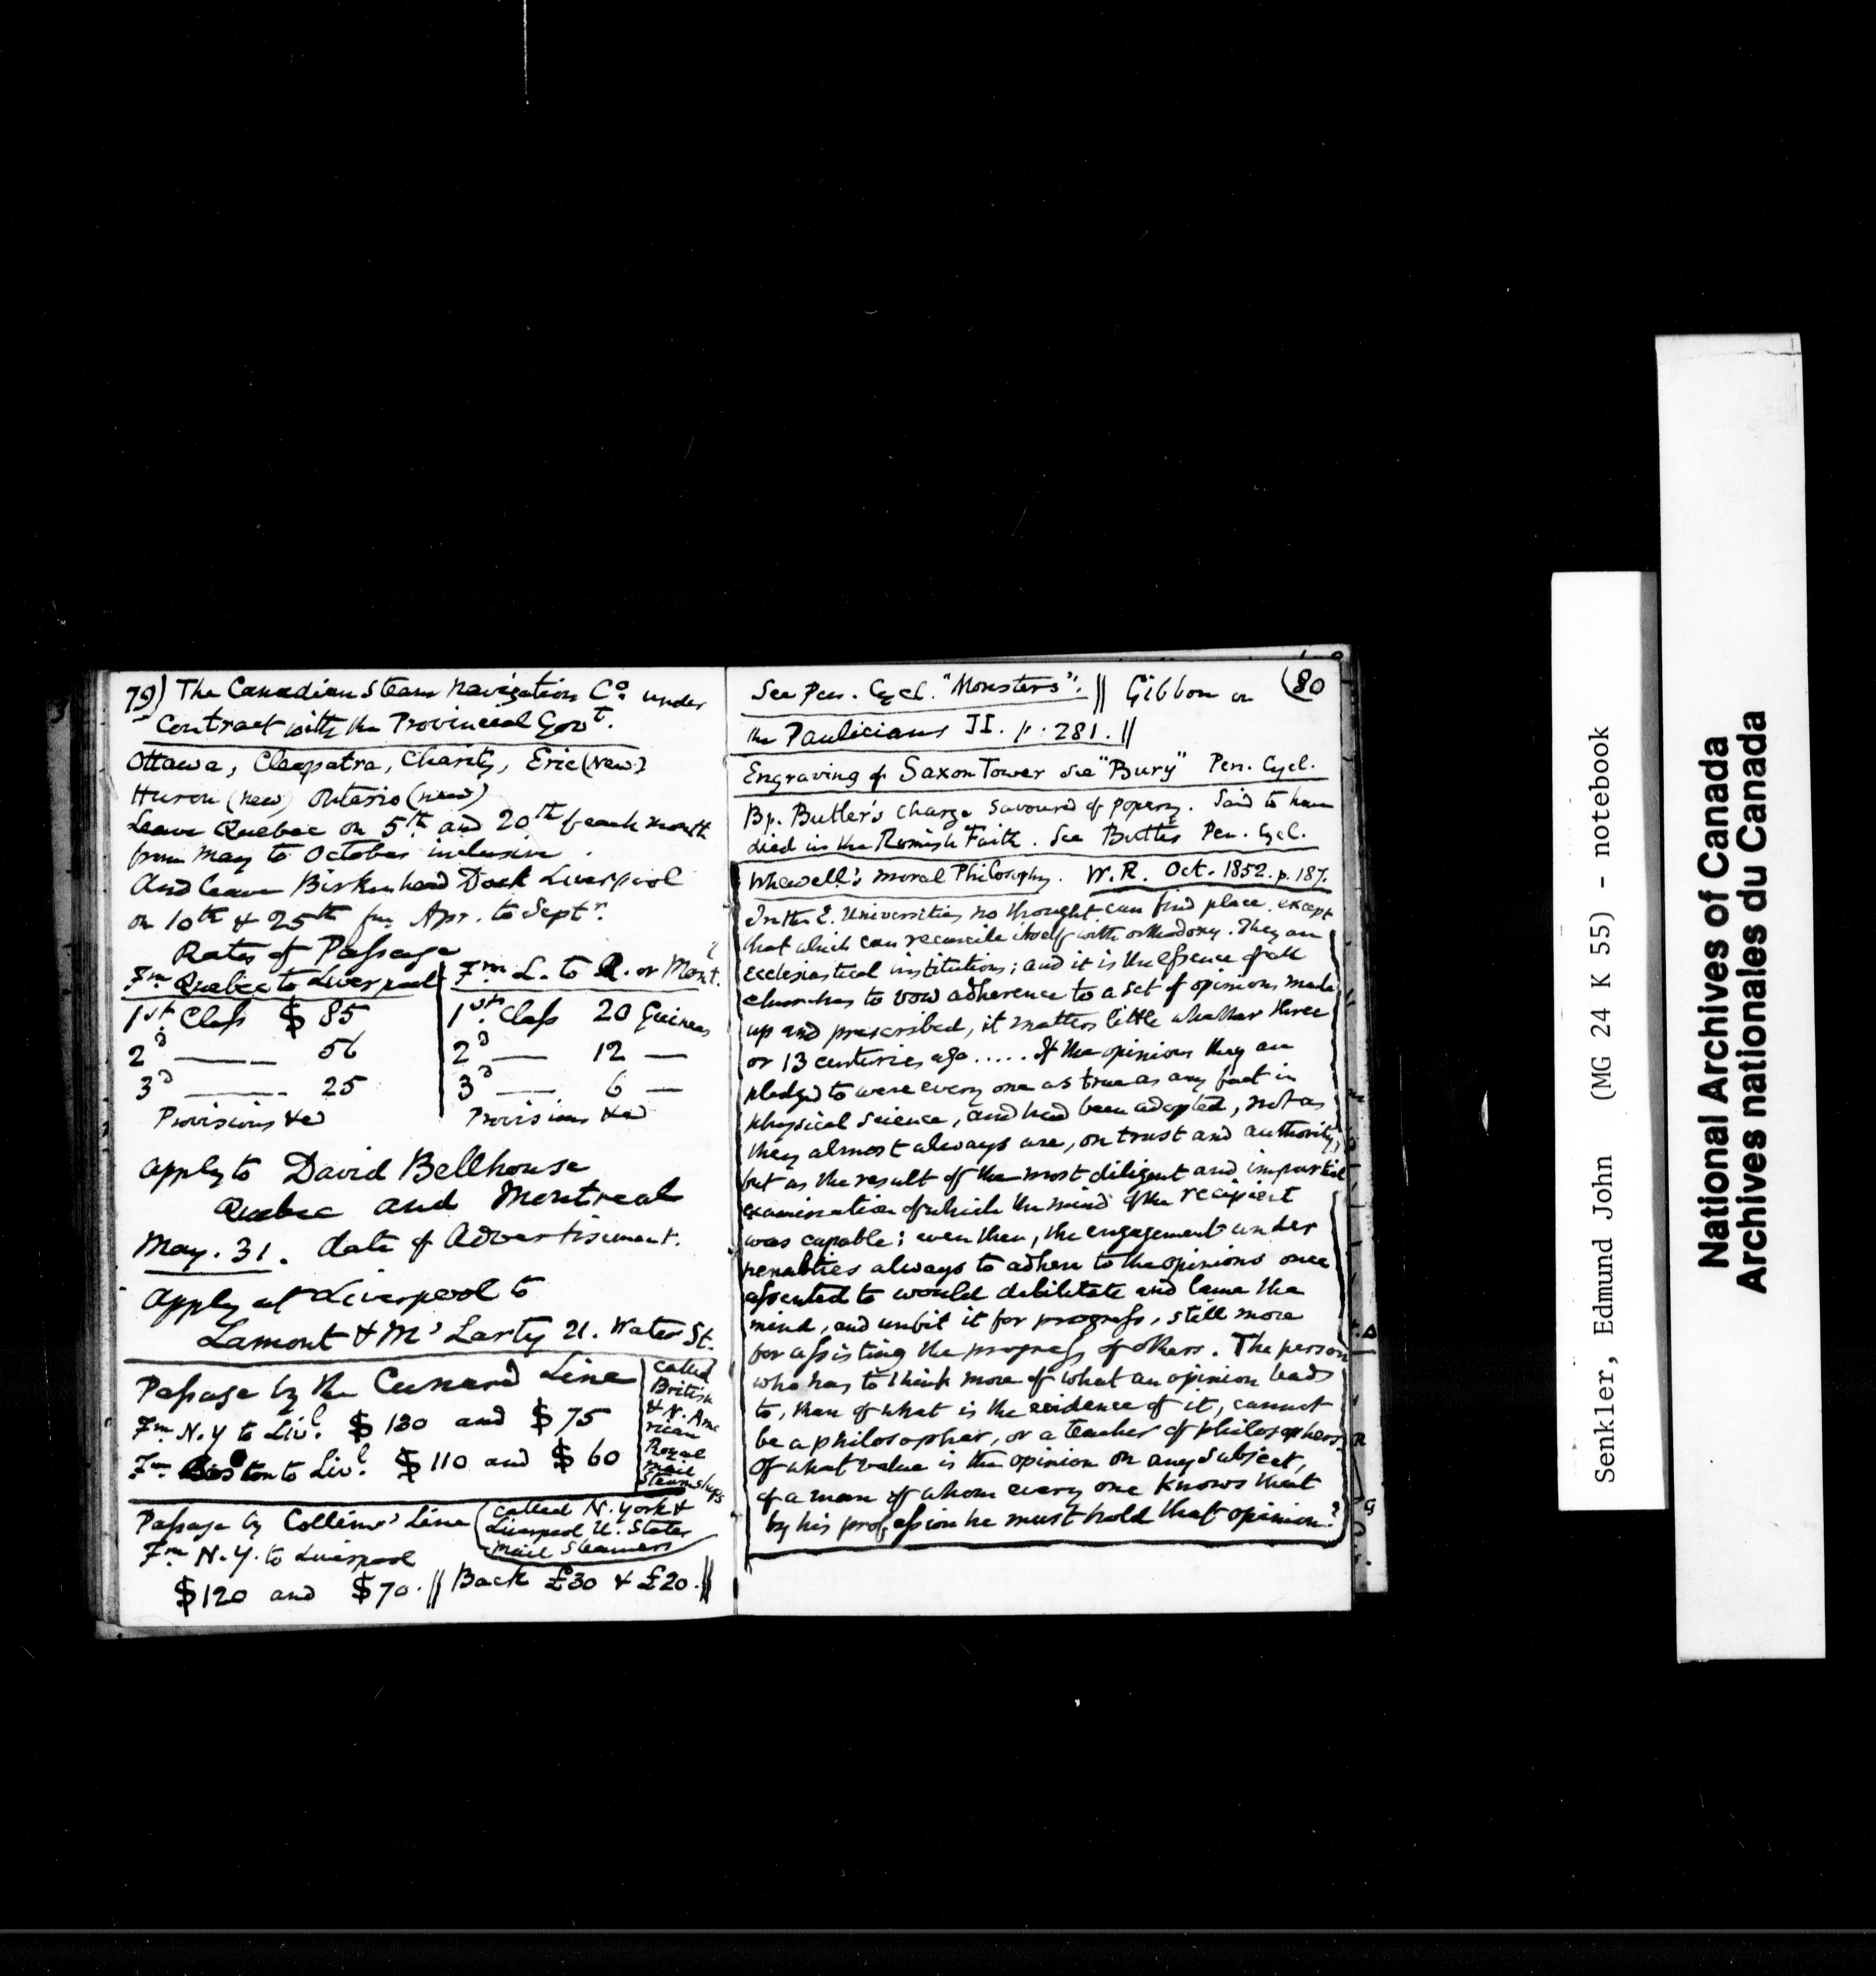 79) The Canadian Steam Navigation Co. under
Contract with the Provincial Govt.
Ottawa, Cleopatra, Charity, Erie (New)
Huron (new) Ontario (new)
Leave Quebec on 5th and 20th of each month
from May to October inclusive.
And leave Birkenhead Dock Liverpool
on 10th & 25th fm Apr. to Septr.
Rates of Passage
Fm Quebec to Liverpool
1st Class $ 85
2d —— 56
3d —— 25
Provisions &c
Fm L. to Q. or Mont.
1st Class 20 Guineas
2d — 12 —
3d — 6 —
Provisions &c
Apply to David Bellhouse
Quebec and Montreal
May. 31. date of Advertisement.
Apply at Liverpool to
Lamont & Mc Larty 21. Water St.
Passage by the Cunard Line
Fm N.Y to Livl. $ 130 and $ 75
Fm Boston to Livl. $ 110 and $ 60
Called
British
& N. Ame
rican
Royal
Mail
Steamships
Passage by Collins' Line
Fm N.Y. to Liverpool
(called N. York &
Liverpool U. States
Mail Steamers
$120 and $70. || Back £30 & £20. ||
(80
See Pen. Cycl. "Monsters". || Gibbon on
the Paulicians II. p. 281. ||
Engraving of Saxon Tower See "Bury" Pen. Cycl.
Bp. Butler's Charge savoured of popery. Said to have
died in the Romish Faith. See Butler Pen. Cycl.
Whewell's Moral Philosophy. W.R. Oct. 1852. p. 187.
In the E. Universities no thought can find place, except
that which can reconcile itself with orthodoxy. They are
ecclesiastical institutions; and it is the essence of all
churches to vow adherence to a set of opinions made
up and prescribed, it matters little whether three
or 13 centuries ago ..... If the opinions they are
pledged to were every one as true as any fact in
physical science, and had been adopted, not as
they almost always are, on trust and authority,
but as the result of the most diligent and impartial
examination of which the mind of the recipient
was capable; even then, the engagement under
penalties always to adhere to the opinions once
assented to would debilitate and lame the
mind, and unfit it for progress, still more
for assisting the progress of others. The person
who has to think more of what an opinion leads
to, than of what is the evidence of it, cannot
be a philosopher, or a teacher of philosophers.
Of what value is the opinion on any subject,
of a man of whom every one knows that
by his profession he must hold that opinion?
Senkler, Edmund John (MG 24 K 55) - notebook
National Archives of Canada
Archives nationales du Canada